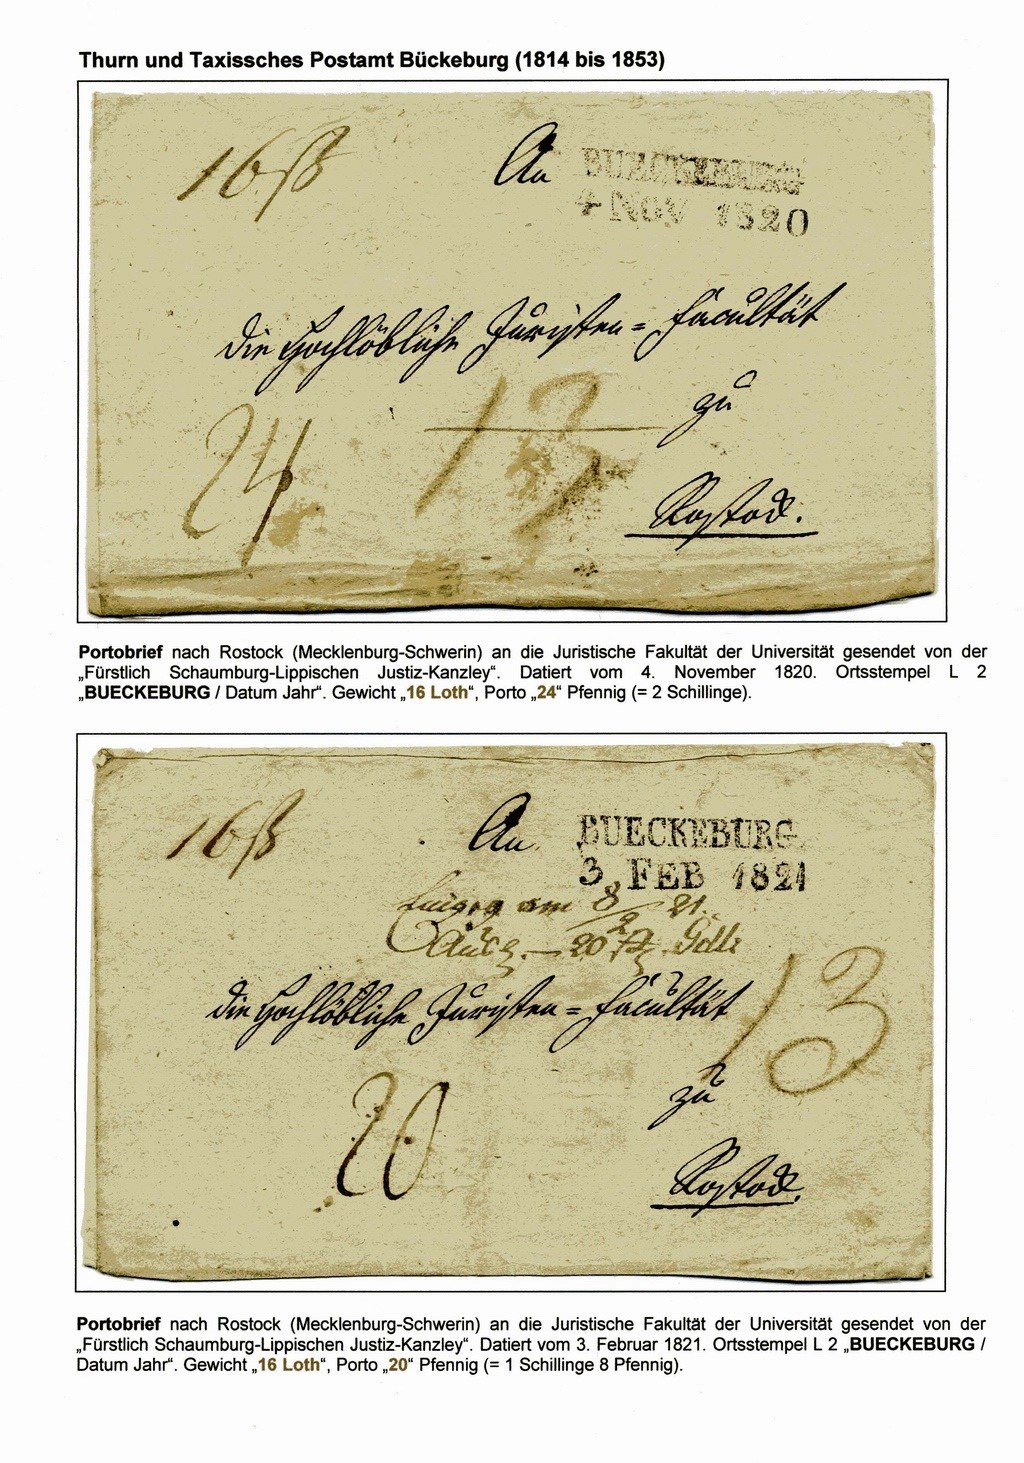 Thurn und Taxissches Postamt Bückeburg (1814 bis 1853)
16 ß
An
BUECKEBURG
4 NOV 1820
die Hochlöbliche Juristen=Facultät
zu
24
13
Rostock.
Portobrief nach Rostock (Mecklenburg-Schwerin) an die Juristische Fakultät der Universität gesendet von der
„Fürstlich Schaumburg-Lippischen Justiz-Kanzley“. Datiert vom 4. November 1820. Ortsstempel L 2
„BUECKEBURG / Datum Jahr“. Gewicht „16 Loth“, Porto „24“ Pfennig (= 2 Schillinge).
16 ß
An
BUECKEBURG
3 FEB 1821
am 8/2 21.
20
die Hochlöbliche Juristen=Facultät
13
zu
20
Rostock.
Portobrief nach Rostock (Mecklenburg-Schwerin) an die Juristische Fakultät der Universität gesendet von der
„Fürstlich Schaumburg-Lippischen Justiz-Kanzley“. Datiert vom 3. Februar 1821. Ortsstempel L 2 „BUECKEBURG /
Datum Jahr“. Gewicht „16 Loth“, Porto „20“ Pfennig (= 1 Schillinge 8 Pfennig).